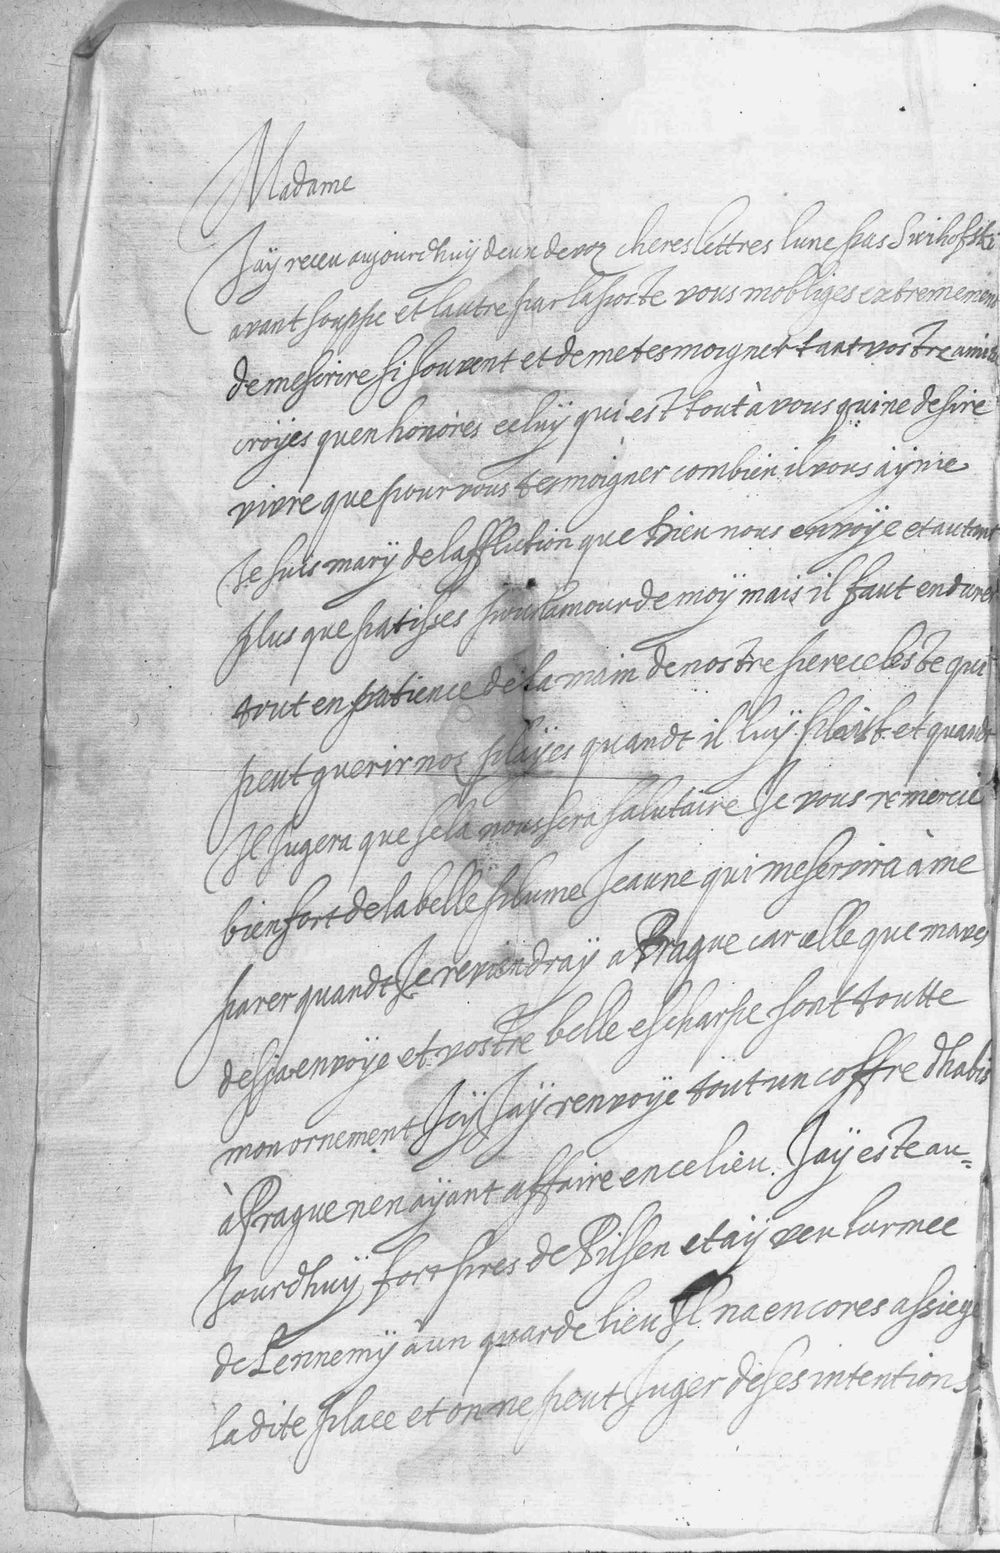 Madame
Jaÿ receu aujourdhuÿ deux de voz cheres lettres lune par Swihofski
avant souppe et lautre par la poste vous mobliges extrememen
de mescrire si souvent et de me tesmoigner tant vostre amitie
croÿes quen honores celuÿ qui est tout à vous qui ne desire
vivre que pour vous tesmoigner combien il vous aÿme
Je suis marÿ de laffliction que Dieu nous envoÿe et autant
plus que patisses pour lamour de moÿ mais il faut endurer
tout en patience de la main de nostre pere celeste qui
peut guerir noz plaÿes quandt il luÿ plaist et quandt
Il Jugera que sela nous sera salutaire Je vous remercie
bien fort de la belle plume Jeaune qui me servira à me
parer quandt Je reviendraÿ a Prague car celle que maves
desja envoÿe et vostre belle escharpe sont toutte
mon ornement Jcÿ Jaÿ renvoÿe tout un coffre dhabis
à Prague nen aÿant affaire en ce lieu. Jaÿ este au=
Jourdhuÿ fort pres de Pilsen et aÿ veu larmee
de Lennemÿ à un quar de lieu Il na encores assiege
la dite place et on ne peut Juger de ses intentions